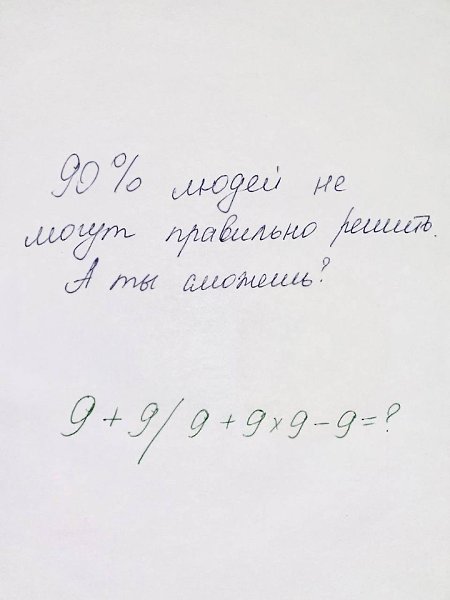 90% людей не
могут правильно решить.
А ты сможешь?
9+9/9+9×9-9=?